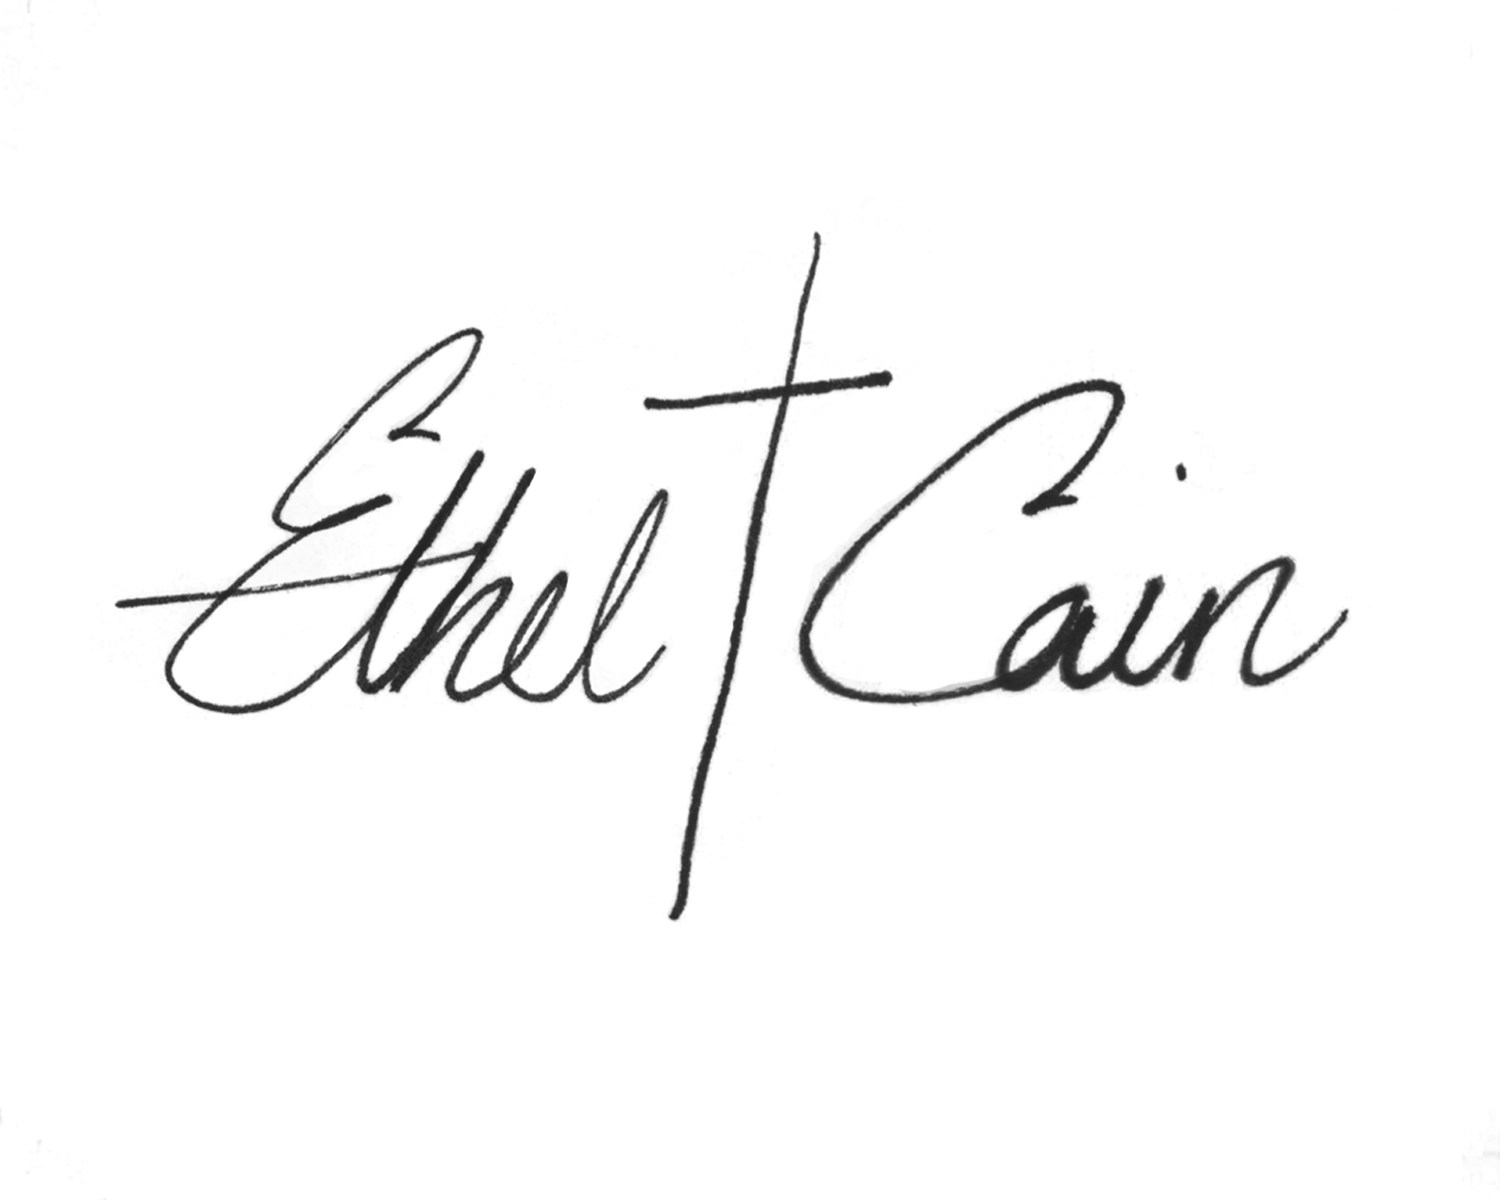 Ethel Cain